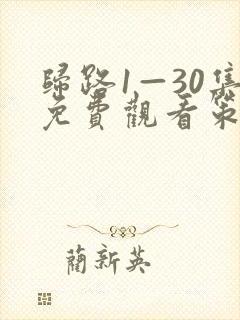 歸路1—30集
免費觀看策
藺新英